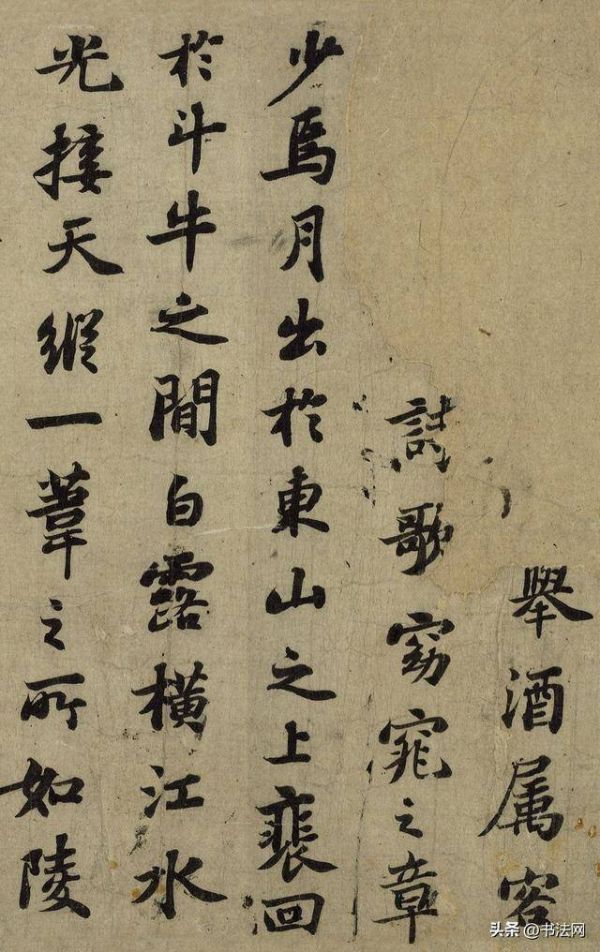 舉酒属客
詩歌窈窕之章
少焉月出於東山之上裴回
於斗牛之間白露横江水
光接天縱一葦之所如陵
头条@书法网